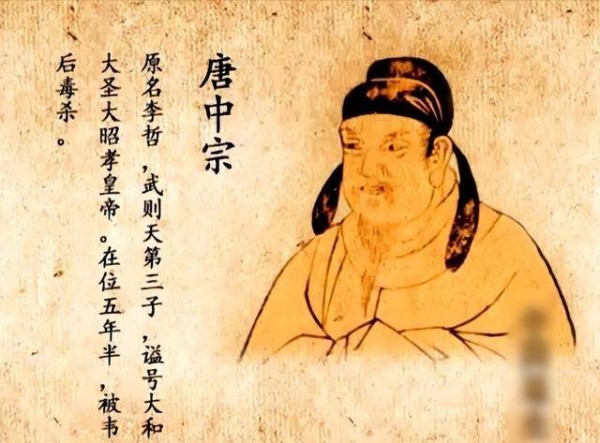 唐中宗
原名李哲，武则天第三子，谥号大和
大圣大昭孝皇帝。在位五年半，被韦
后毒杀。